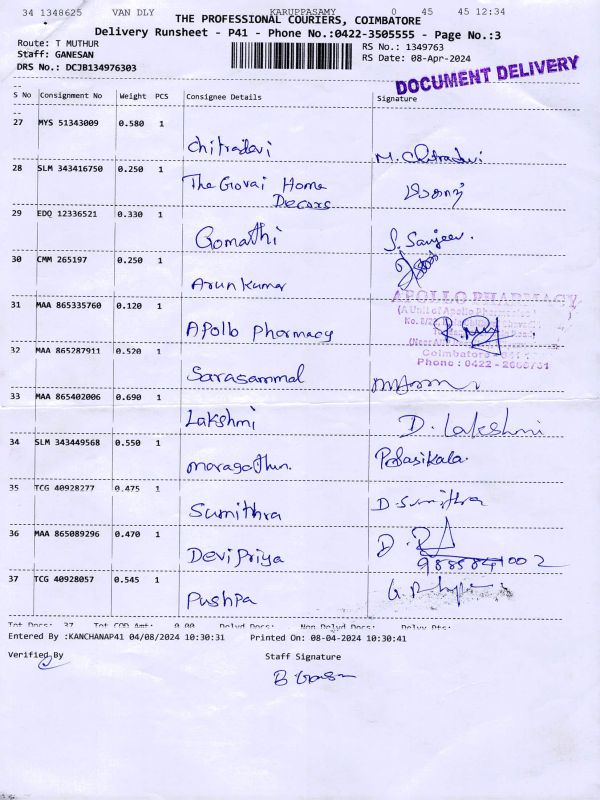 34 1348625 VAN DLY KARUPPASAMY 0 45 45 12:34
THE PROFESSIONAL COURIERS, COIMBATORE
Delivery Runsheet - P41 - Phone No.:0422-3505555 - Page No.:3
Route: T MUTHUR
RS No.: 1349763
Staff: GANESAN
RS Date: 08-Apr-2024
DRS No.: DCJB134976303
DOCUMENT DELIVERY
S No Consignment No Weight PCS Consignee Details Signature
27 MYS 51343009 0.580 1
Chitradevi M. Chitradevi
28 SLM 343416750 0.250 1
The Govai Home
Decors
29 EDQ 12336521 0.330 1
Gomathi S. Sanjeev.
30 CMM 265197 0.250 1
Arunkumar
APOLLO PHARMACY
31 MAA 865335760 0.120 1
(A Unit of Apollo Pharmacies
Apollo Pharmacy
32 MAA 865287911 0.520 1
Coimbatore - 641
Phone : 0422 -
Sarasammal
33 MAA 865402006 0.690 1
Lakshmi D. Lakshmi
34 SLM 343449568 0.550 1
Maragathun. P. Sasikala
35 TCG 40928277 0.475 1
Sumithra D. Sumithra
36 MAA 865089296 0.470 1
Devi Priya
37 TCG 40928057 0.545 1
Pushpa
Tot Docs: 37 Tot COD Amt: 0.00 Delvd Docs: Non Delvd Docs: Delvy Pts:
Entered By :KANCHANAP41 04/08/2024 10:30:31 Printed On: 08-04-2024 10:30:41
Verified By Staff Signature